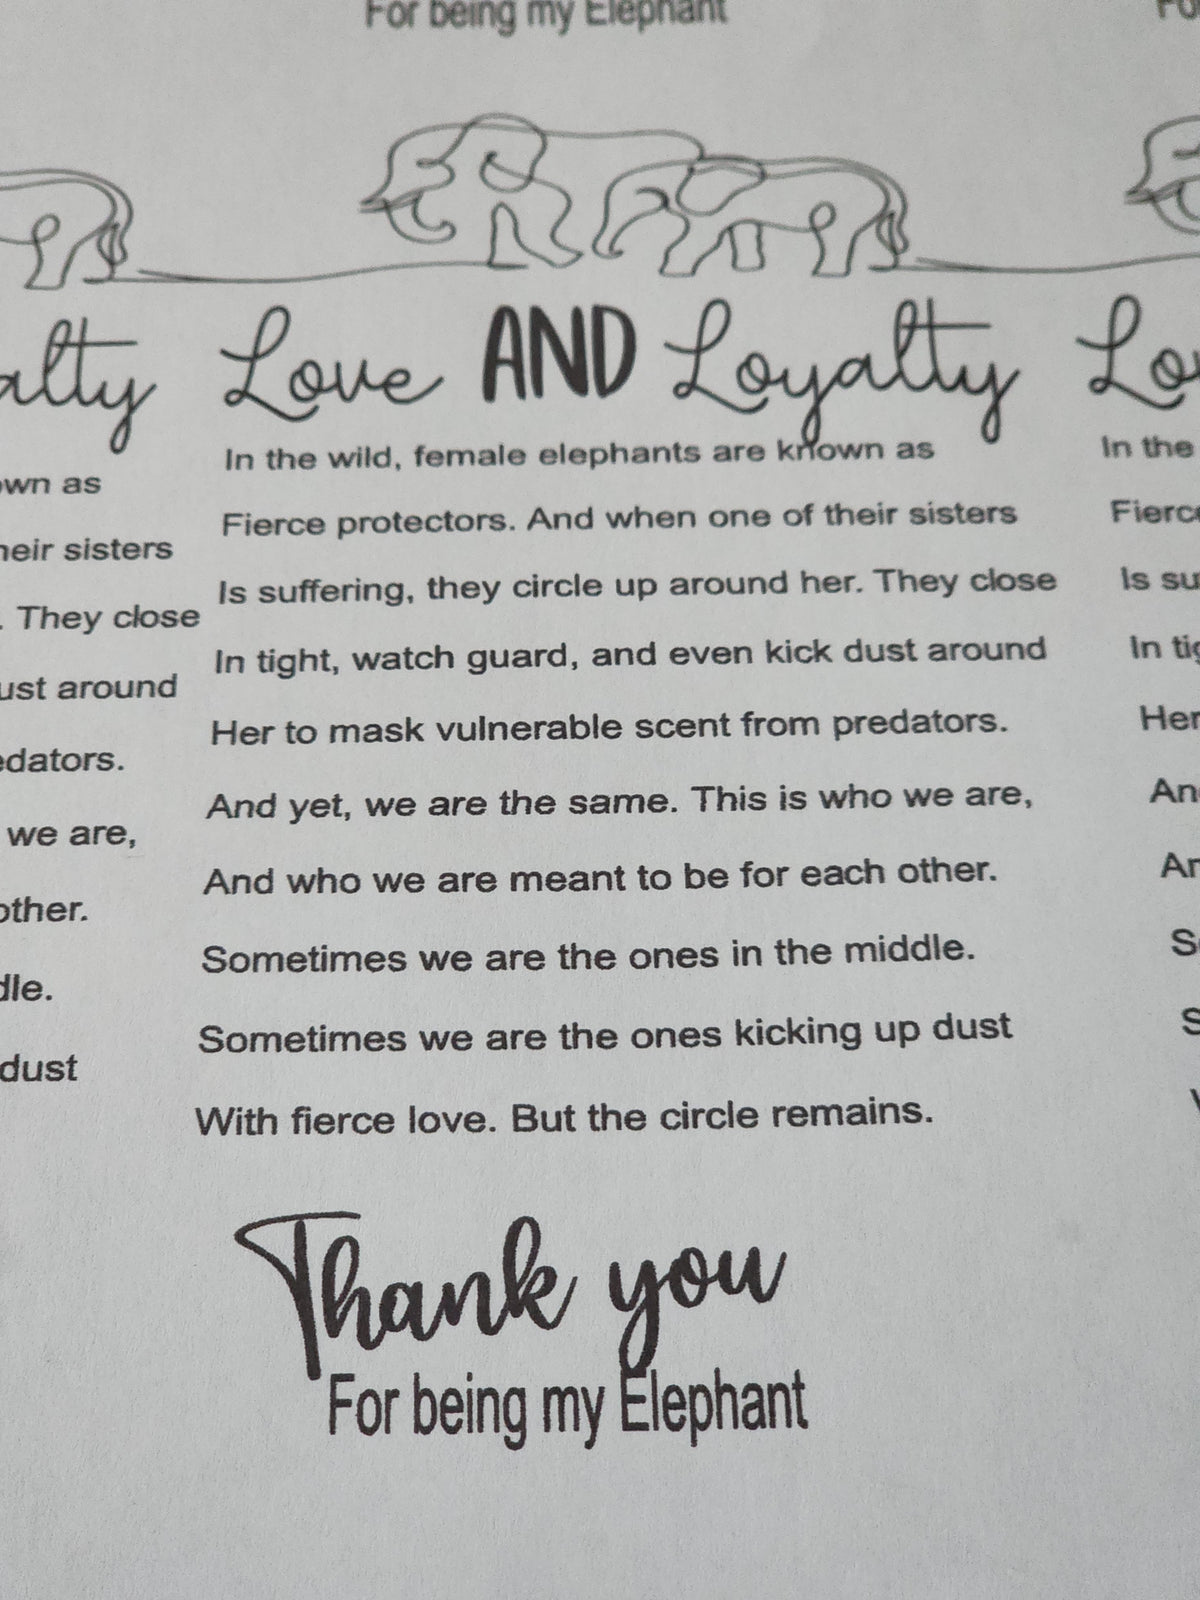 For being my Elephant
Love AND Loyalty
In the wild, female elephants are known as
Fierce protectors. And when one of their sisters
Is suffering, they circle up around her. They close
In tight, watch guard, and even kick dust around
Her to mask vulnerable scent from predators.
And yet, we are the same. This is who we are,
And who we are meant to be for each other.
Sometimes we are the ones in the middle.
Sometimes we are the ones kicking up dust
With fierce love. But the circle remains.
Thank you
For being my Elephant
as
sisters
They close
around
we are,
dust
In the